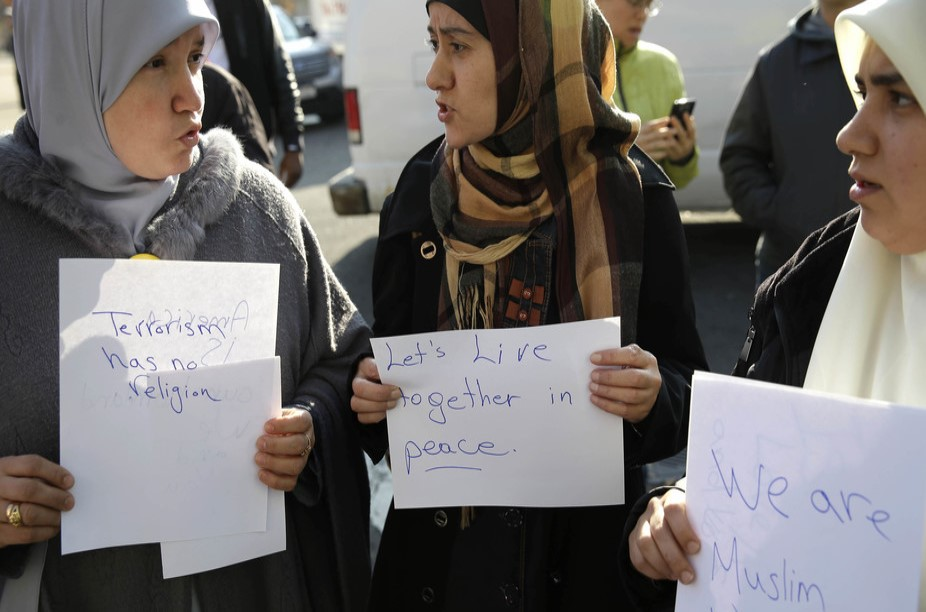 Terrorism
has no
religion
Let's Live
together in
peace.
We are
Muslim